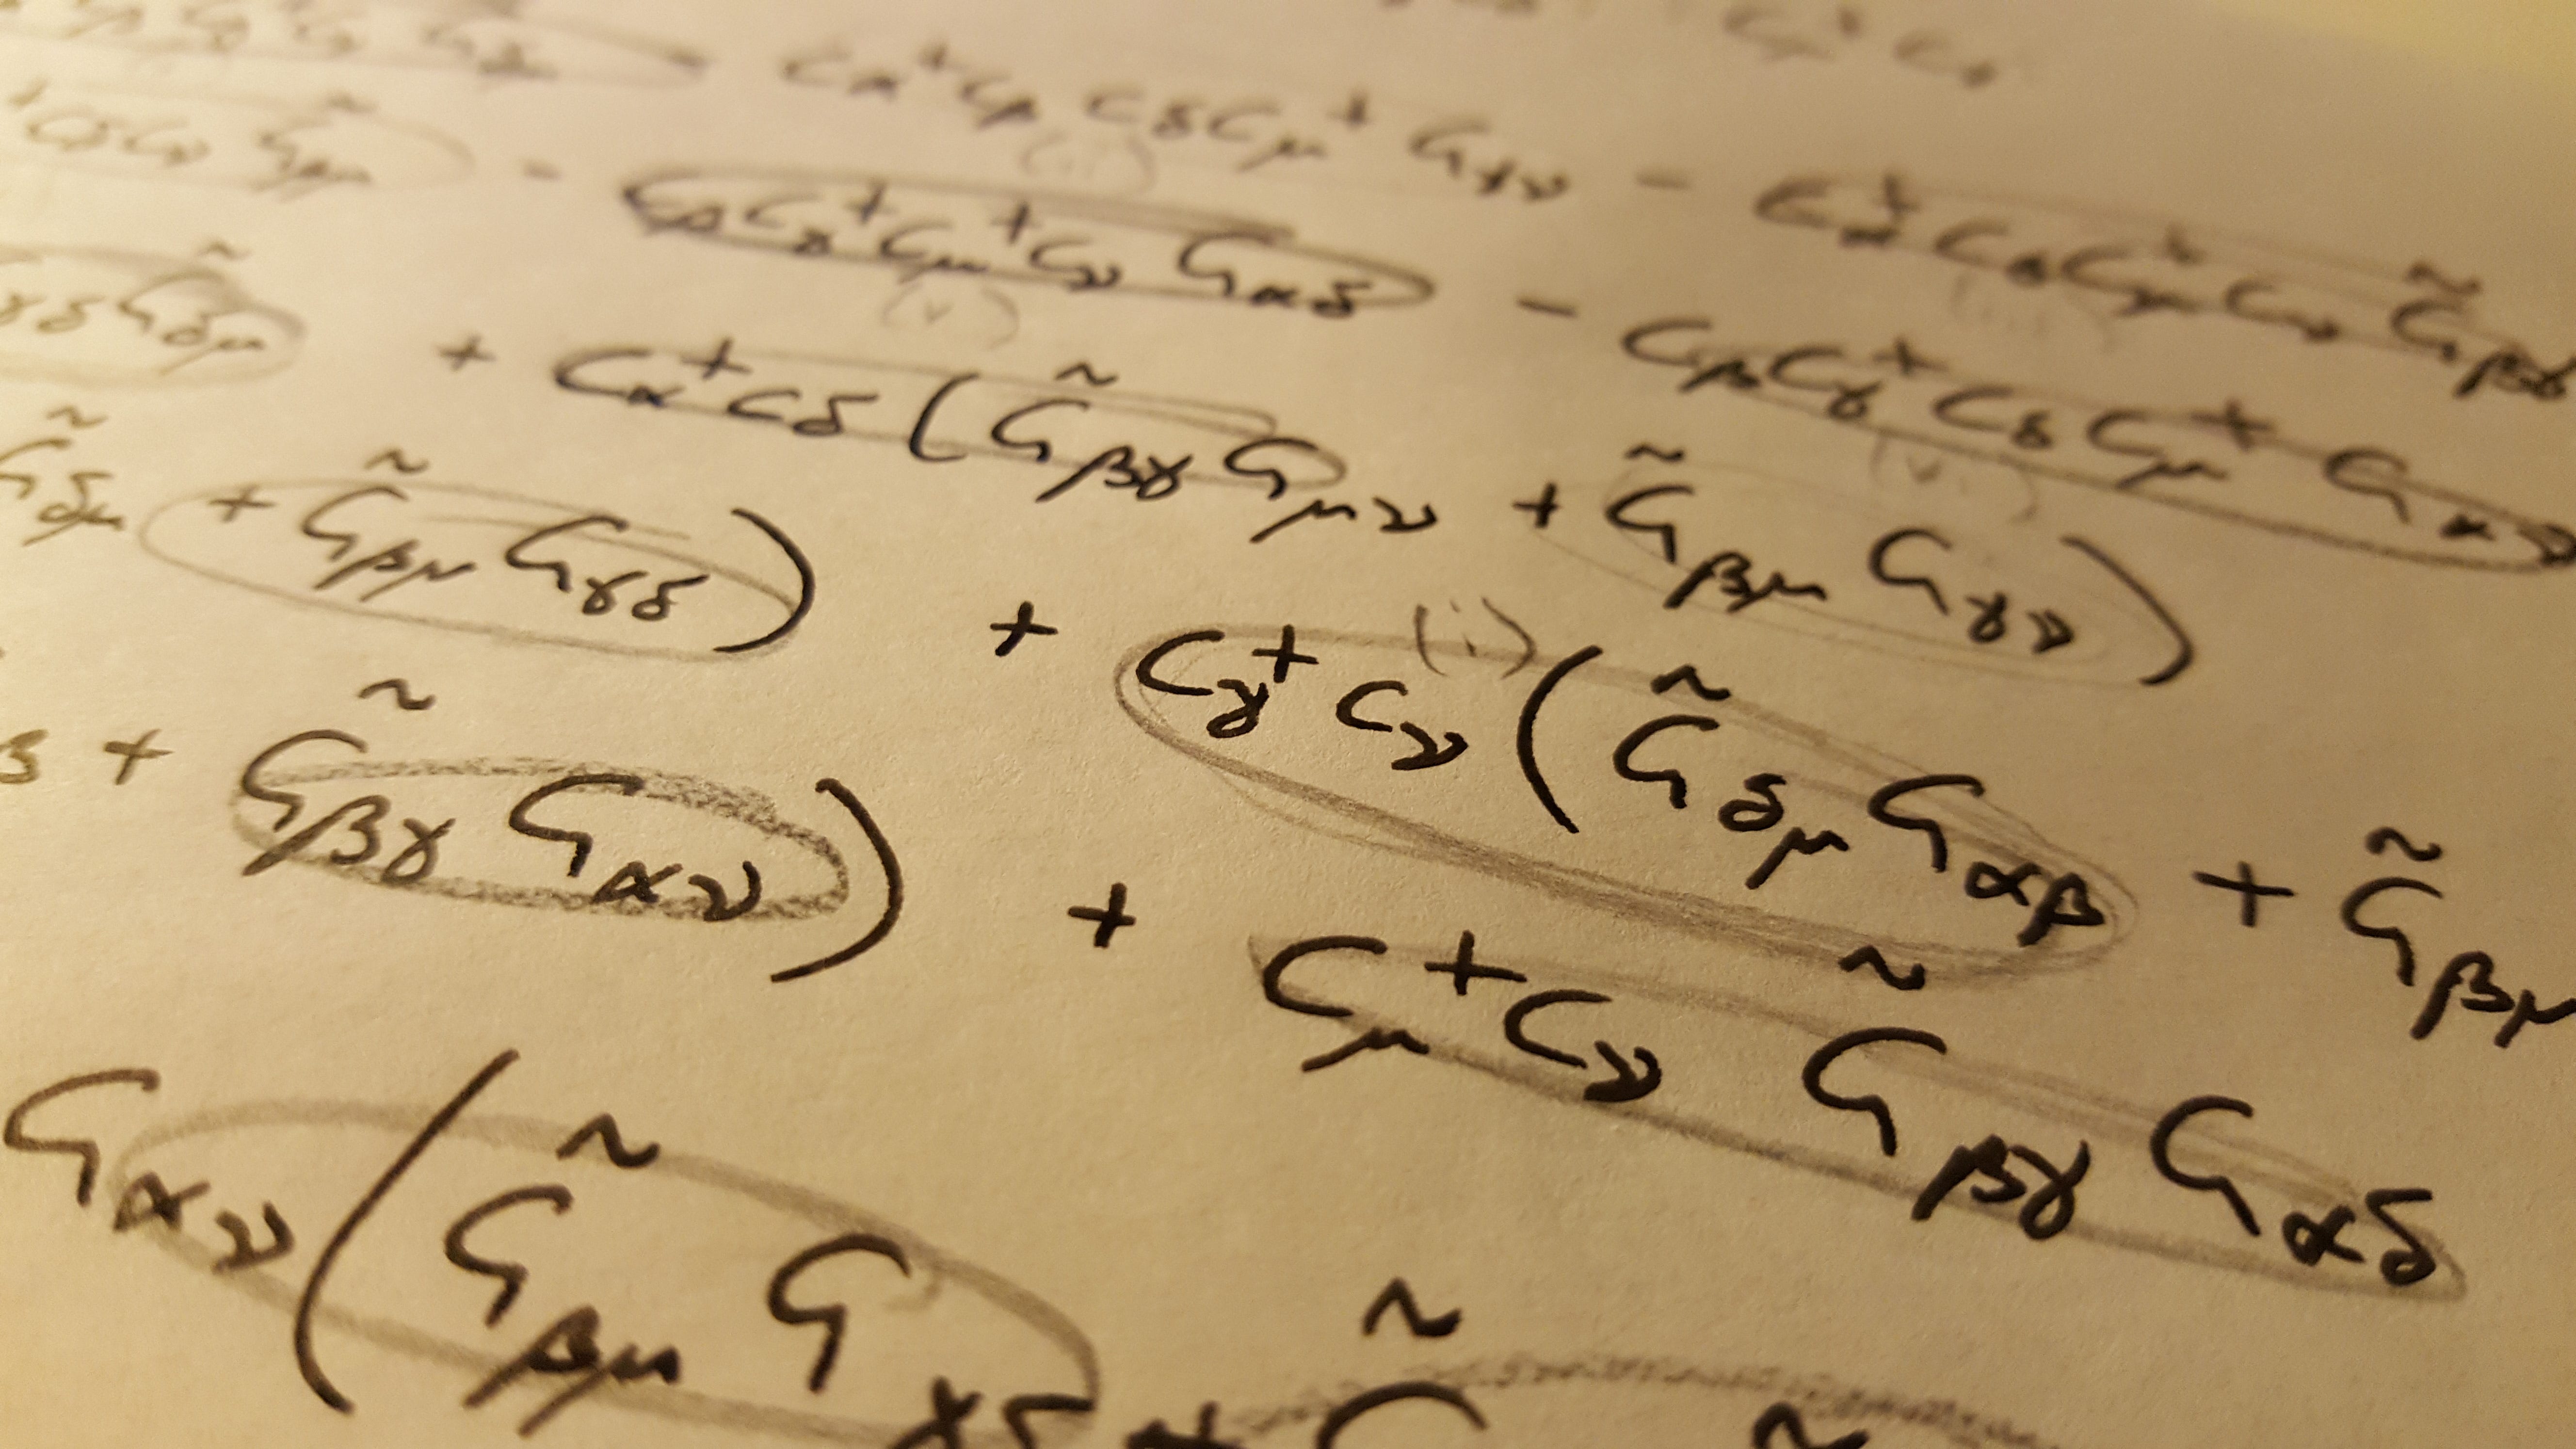 − cα⁺cβ cδcμ⁺ Gγν − cα⁺cδcμ⁺cν G̃βγ
G̃βμ − cβcγ⁺cμ⁺cν Gαδ − cβcγ⁺cδcμ⁺ Gαν
(v) (vi)
γδ G̃δμ + cα⁺cδ (G̃βγ Gμν + G̃βμ Gγν)
G̃δμ + G̃βμ Gγδ) + cγ⁺cν (G̃δμ Gαβ + G̃βμ
(i)
β + G̃βγ Gαν) + cμ⁺cν G̃βγ Gαδ
Gαν (G̃βμ Gγδ +